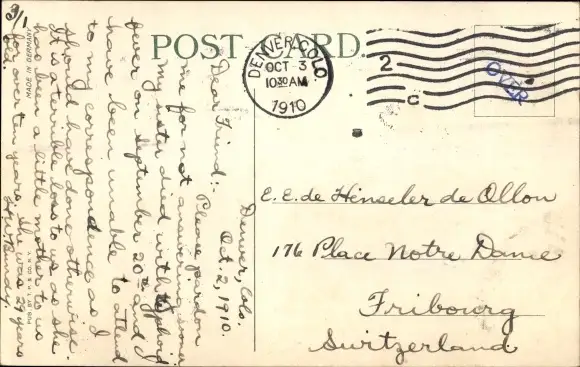 3/1
POST CARD.
DENVER, COLO.
OCT 3
10 30 AM
1910
2
C
OVER
Denver, Colo.
Oct. 2, 1910.
Dear Friend:-
Please pardon
me for not answering sooner
my sister died with typhoid
fever on September 20th and I
have been unable to attend
to my correspondence as I
should have done otherwise.
It is a terrible loss to us as she
has been a little mother to us
for over ten years, she was 29 years
old.
H.W. Bundy.
E. E. de Hinseler de Ollon
176 Place Notre Dame
Fribourg
Switzerland.
MADE IN GERMANY